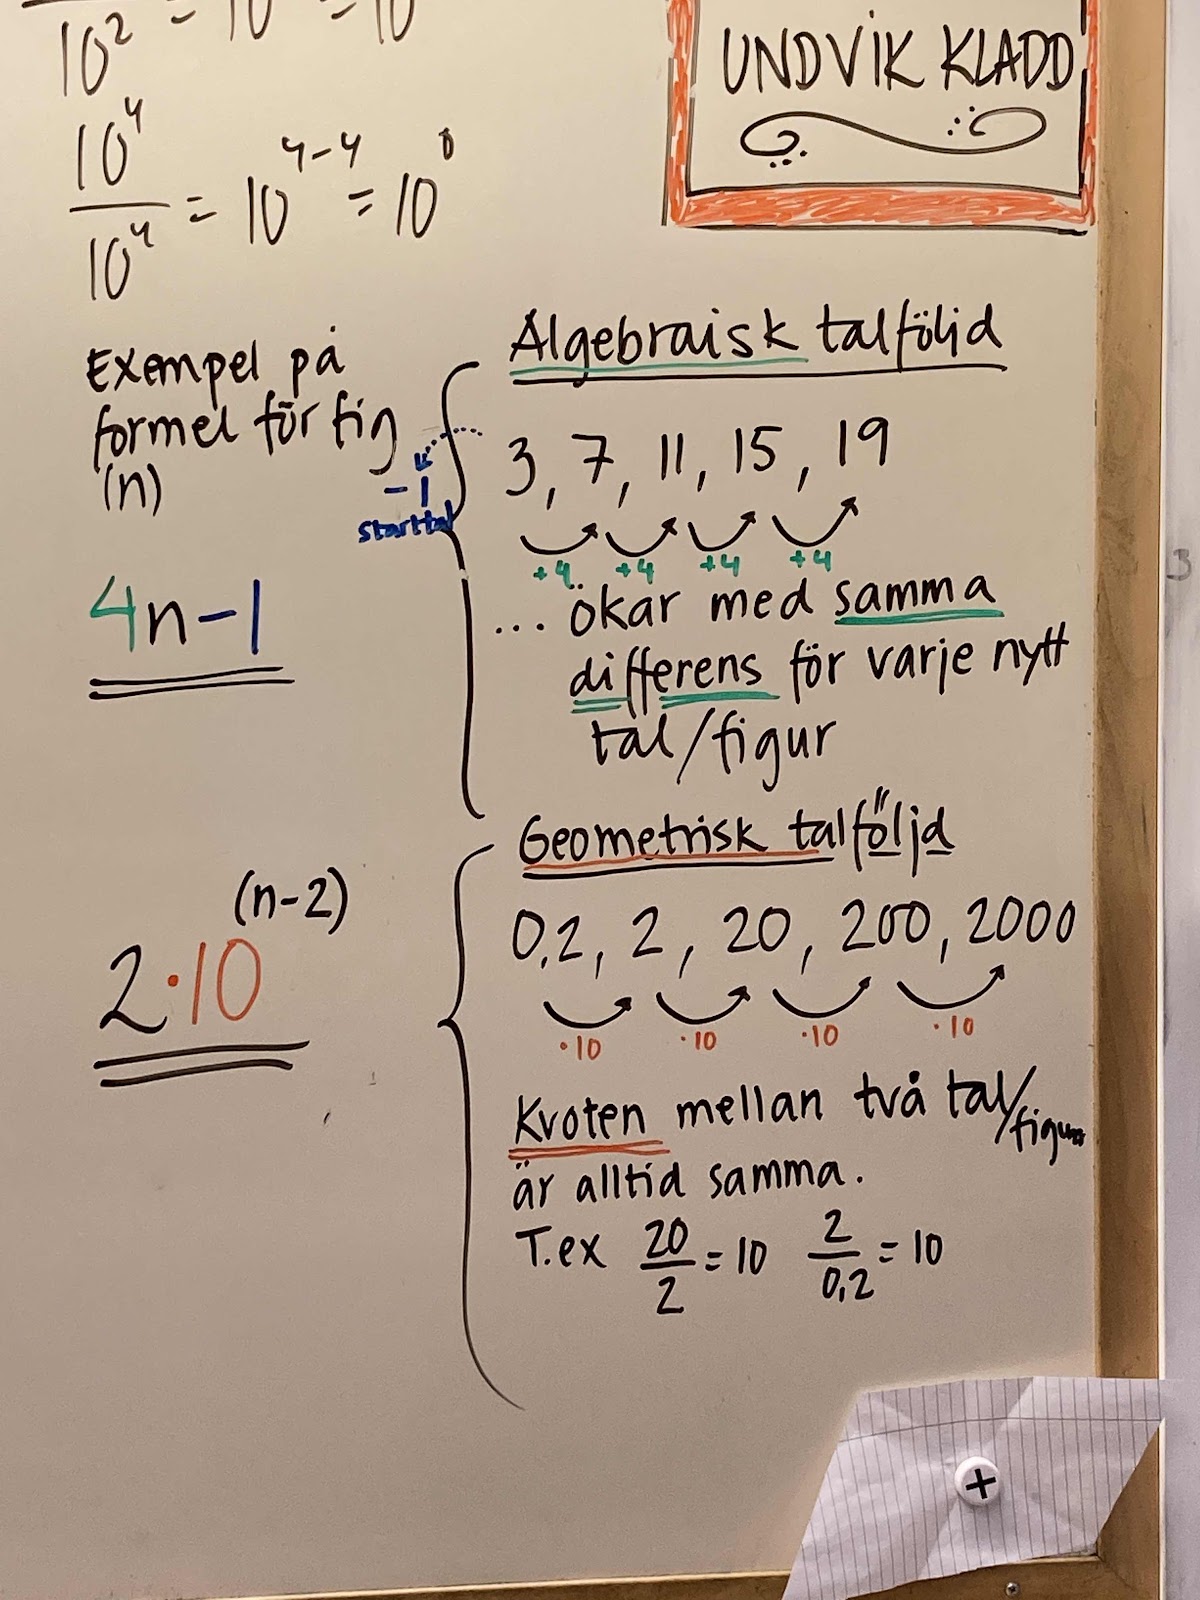 10² = 10 = 10
UNDVIK KLADD
10⁴/10⁴ = 10⁴⁻⁴ = 10⁰
Exempel på
formel för fig
(n)
4n-1
Algebraisk talföljd
3, 7, 11, 15, 19
-1
starttal
+4 +4 +4 +4
... ökar med samma
differens för varje nytt
tal/figur
2·10^(n-2)
Geometrisk talföljd
0,2, 2, 20, 200, 2000
·10 ·10 ·10 ·10
Kvoten mellan två tal/figurer
är alltid samma.
T.ex 20/2 = 10 2/0,2 = 10
+
3